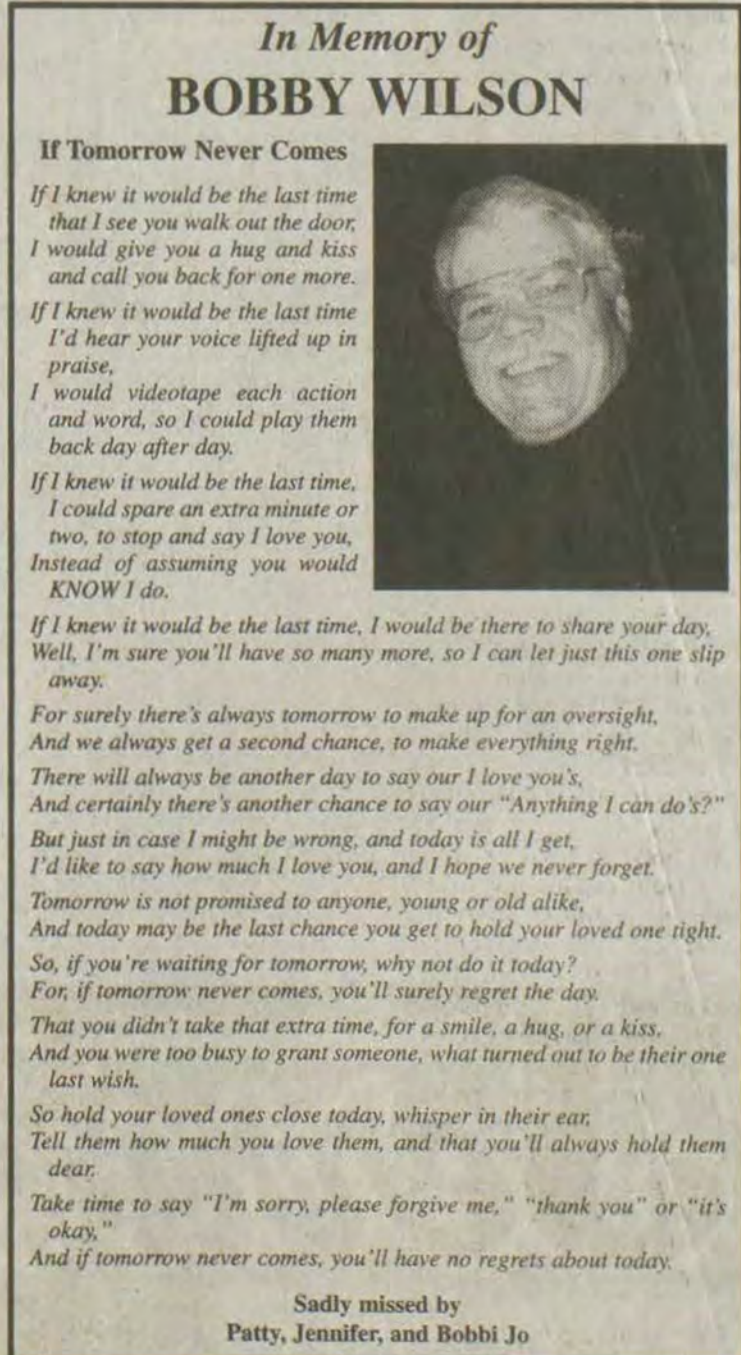 In Memory of
BOBBY WILSON
If Tomorrow Never Comes
If I knew it would be the last time
that I see you walk out the door,
I would give you a hug and kiss
and call you back for one more.
If I knew it would be the last time
I'd hear your voice lifted up in
praise,
I would videotape each action
and word, so I could play them
back day after day.
If I knew it would be the last time,
I could spare an extra minute or
two, to stop and say I love you,
Instead of assuming you would
KNOW I do.
If I knew it would be the last time, I would be there to share your day,
Well, I'm sure you'll have so many more, so I can let just this one slip
away.
For surely there's always tomorrow to make up for an oversight,
And we always get a second chance, to make everything right.
There will always be another day to say our I love you's,
And certainly there's another chance to say our "Anything I can do's?"
But just in case I might be wrong, and today is all I get,
I'd like to say how much I love you, and I hope we never forget.
Tomorrow is not promised to anyone, young or old alike,
And today may be the last chance you get to hold your loved one tight.
So, if you're waiting for tomorrow, why not do it today?
For, if tomorrow never comes, you'll surely regret the day.
That you didn't take that extra time, for a smile, a hug, or a kiss,
And you were too busy to grant someone, what turned out to be their one
last wish.
So hold your loved ones close today, whisper in their ear,
Tell them how much you love them, and that you'll always hold them
dear.
Take time to say "I'm sorry, please forgive me," "thank you" or "it's
okay,"
And if tomorrow never comes, you'll have no regrets about today.
Sadly missed by
Patty, Jennifer, and Bobbi Jo